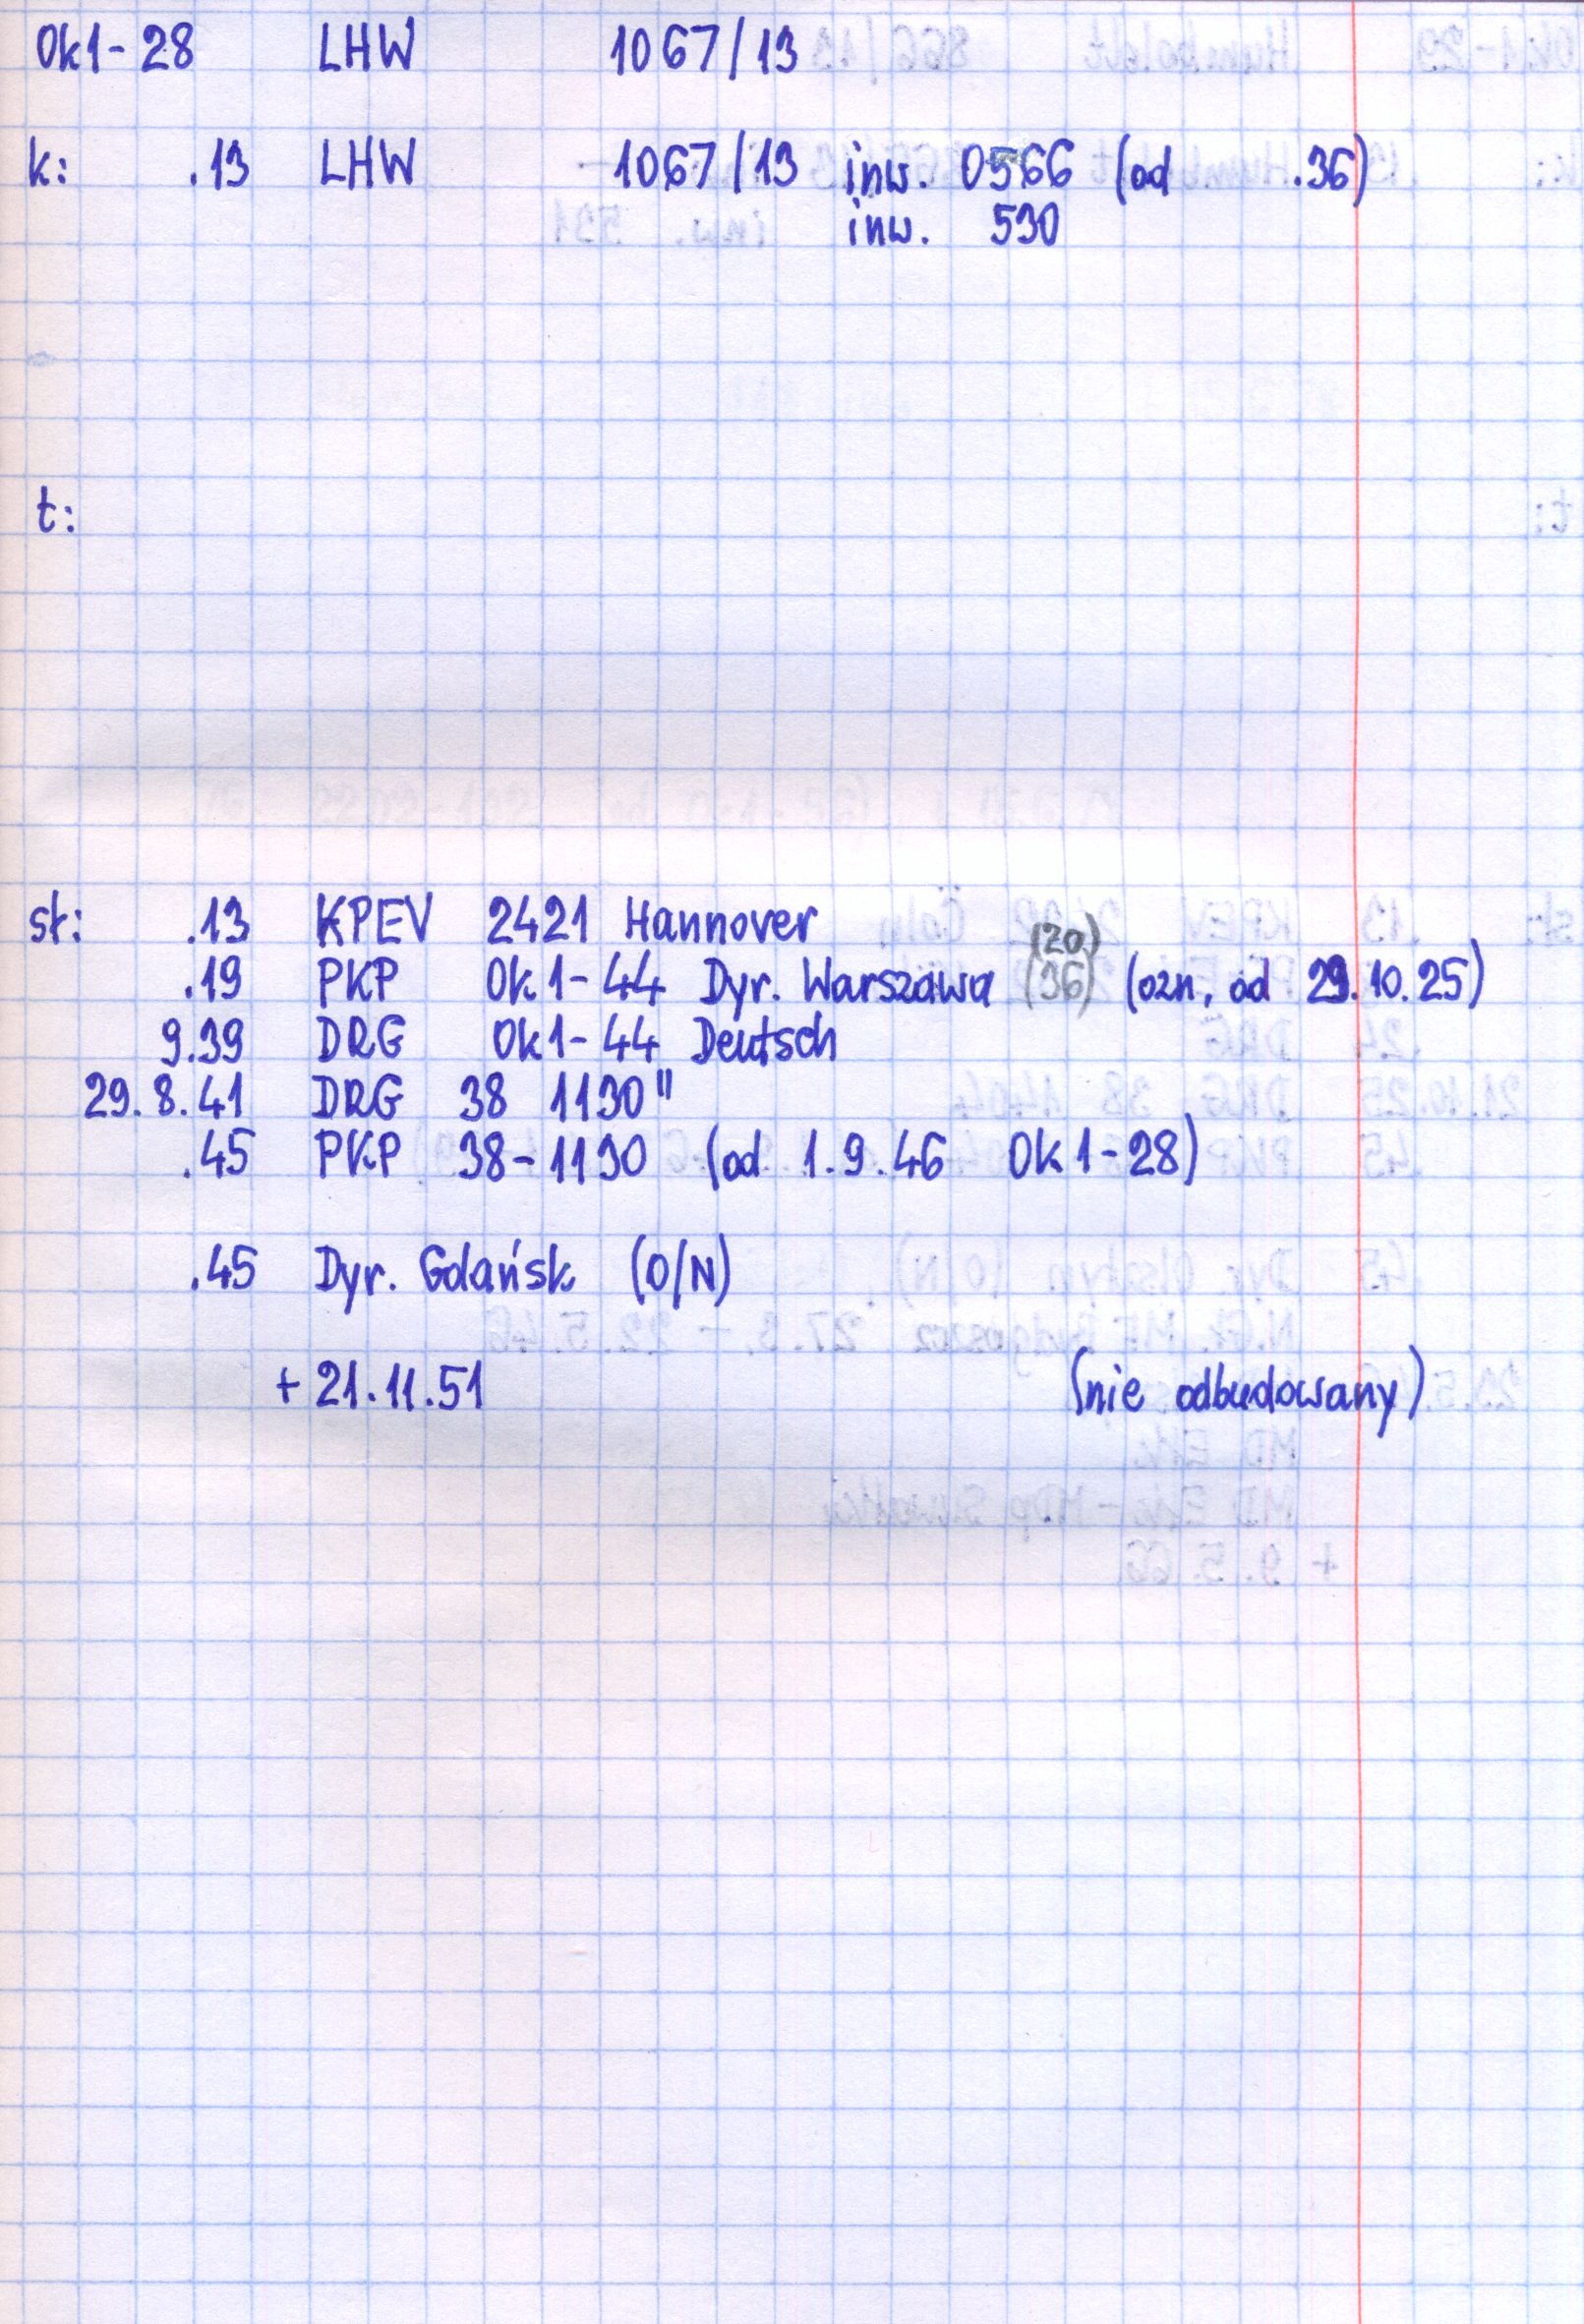 Ok1-28 LHW 1067/13
k: .13 LHW 1067/13 inw. 0566 (od .36)
inw. 530
t:
st: .13 KPEV 2421 Hannover
(20)
.19 PKP Ok1-44 Dyr. Warszawa (36) (ozn. od 29.10.25)
9.39 DRG Ok1-44 Deutsch
29.8.41 DRG 38 1130"
.45 PKP 38-1130 (od 1.9.46 Ok1-28)
.45 Dyr. Gdańsk (O/N)
+ 21.11.51 (nie odbudowany)